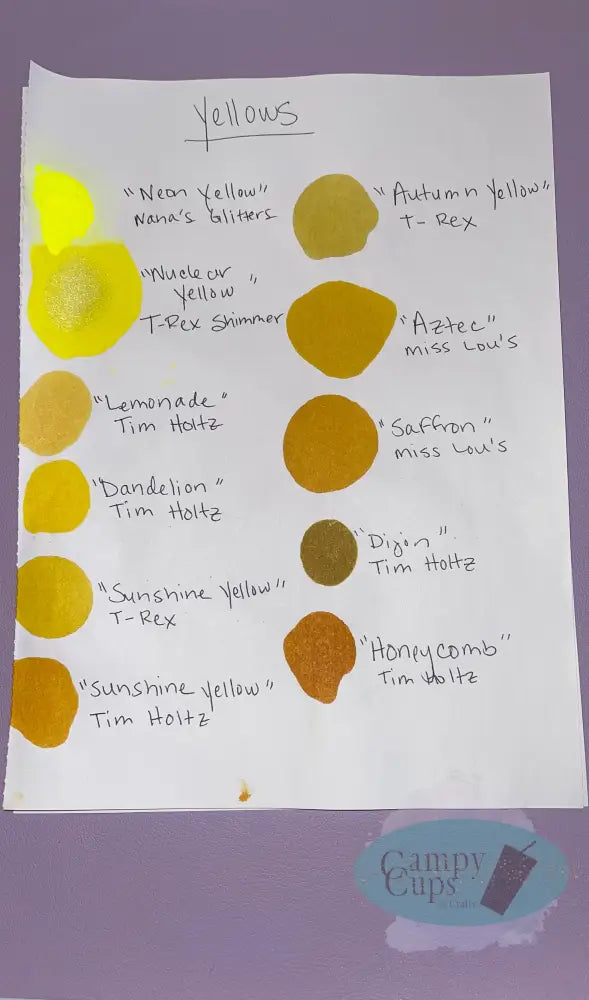 Yellows
"Neon Yellow"
Nana's Glitters
"Nuclear
Yellow"
T-Rex Shimmer
"Lemonade"
Tim Holtz
"Dandelion"
Tim Holtz
"Sunshine Yellow"
T-Rex
"Sunshine Yellow"
Tim Holtz
"Autumn Yellow"
T-Rex
"Aztec"
Miss Lou's
"Saffron"
Miss Lou's
"Dijon"
Tim Holtz
"Honeycomb"
Tim Holtz
Campy
Cups
& Crafts